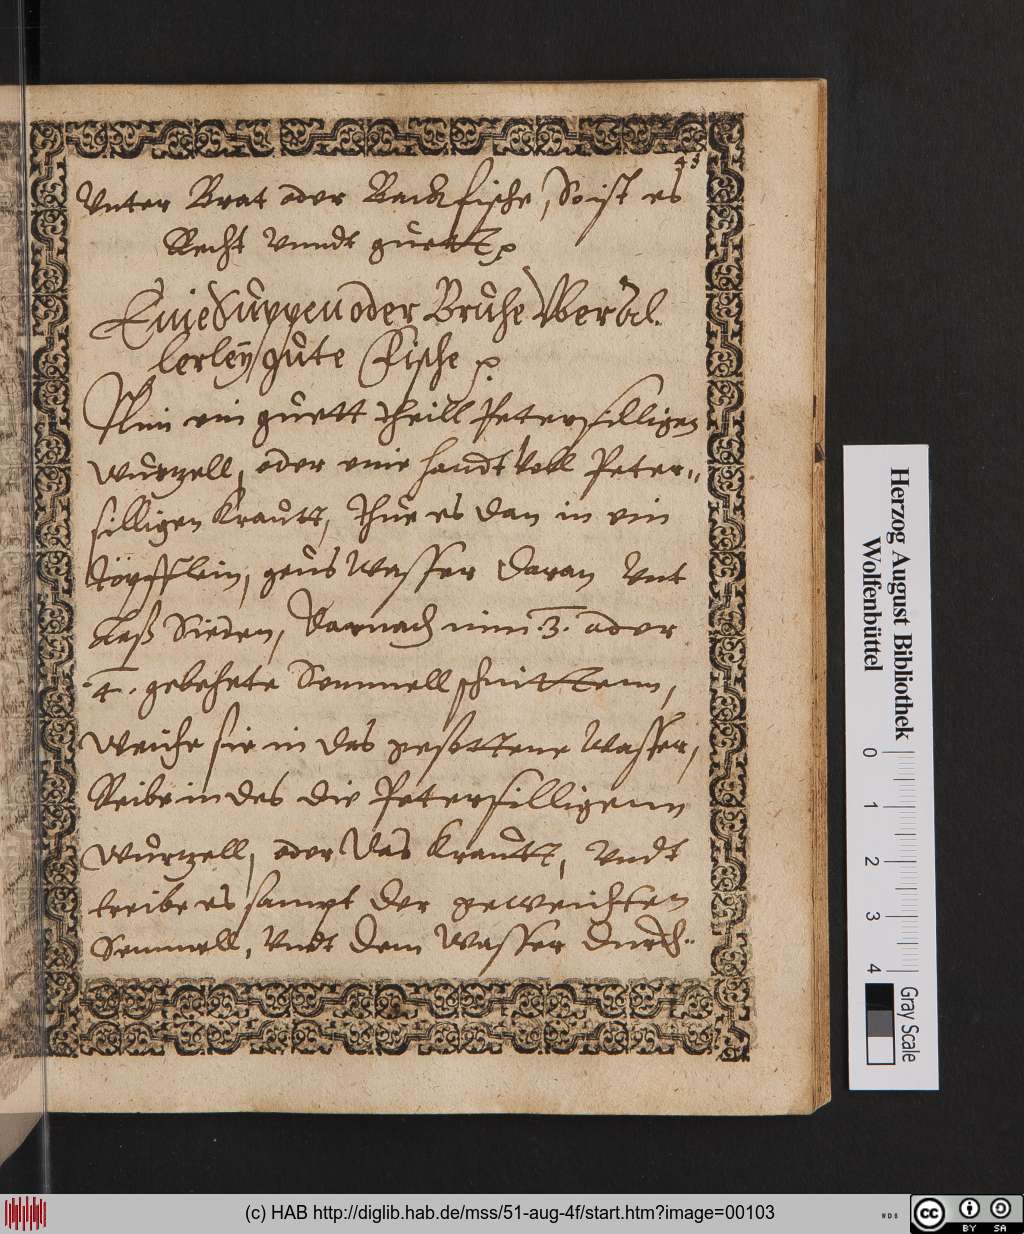 45
Vnter Brat oder Backfische, So ist es
Recht Vnndt guett
Eine Suppen oder Bruhe Vber al
lerley gute Fische
Nim ein guett theill Petersilligen
wurtzell, oder eine handt voll Peter„
silligen Krautt, thue es dan in ein
töpfflein, geus Wasser daran Vnt
laß Sieden, Darnach nim .3. oder
.4. gebehete Semmell schnittenn,
weiche sie in das gesottene Wasser,
Reibe in des die Petersilligenn
wurtzell, oder das Krautt, Vndt
treibe es sampt der geweichten
Semmell, Vndt dem Wasser durch
Herzog August Bibliothek
Wolfenbüttel
0 1 2 3 4
Gray Scale
(c) HAB http://diglib.hab.de/mss/51-aug-4f/start.htm?image=00103
WDB
cc BY SA